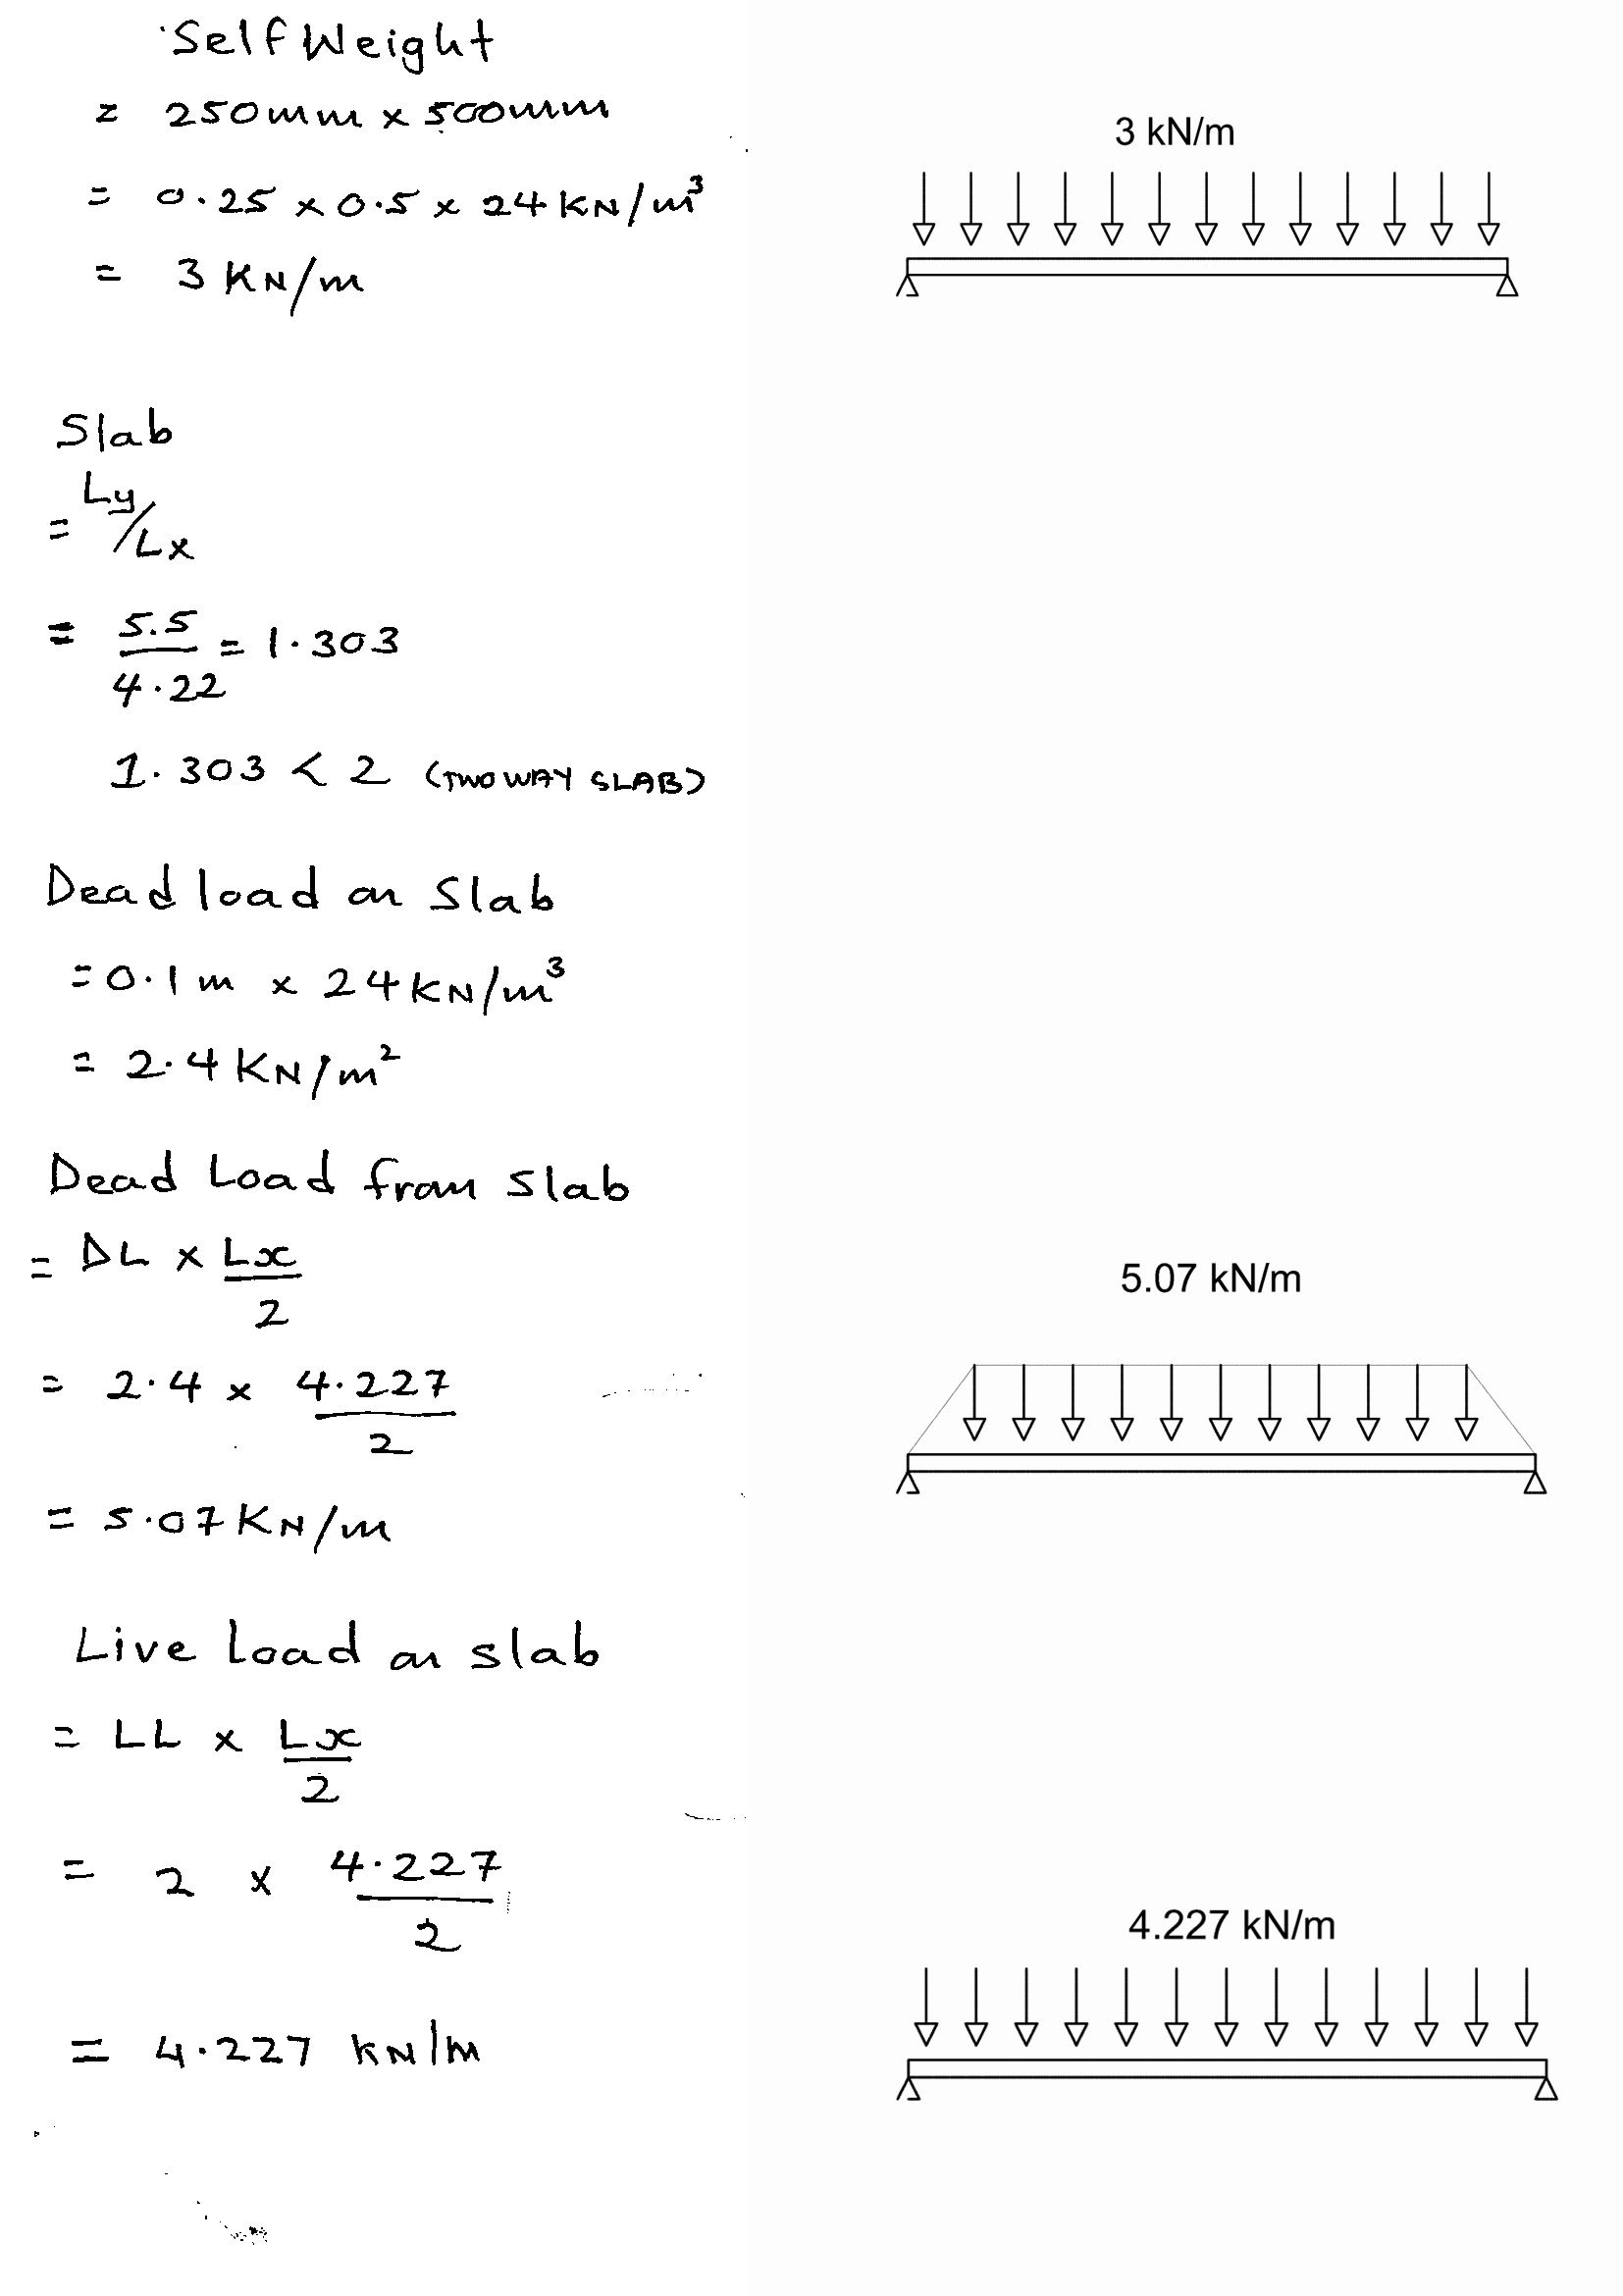 Self Weight
= 250mm x 500mm
3 kN/m
= 0.25 x 0.5 x 24 KN/m³
= 3 KN/m
Slab
= Ly/Lx
= 5.5/4.22 = 1.303
1.303 < 2 (TWO WAY SLAB)
Dead load on Slab
= 0.1 m x 24 KN/m³
= 2.4 KN/m²
Dead Load from slab
= DL x Lx/2
5.07 kN/m
= 2.4 x 4.227/2
= 5.07 KN/m
Live Load on slab
= LL x Lx/2
= 2 x 4.227/2
4.227 kN/m
= 4.227 kN/m